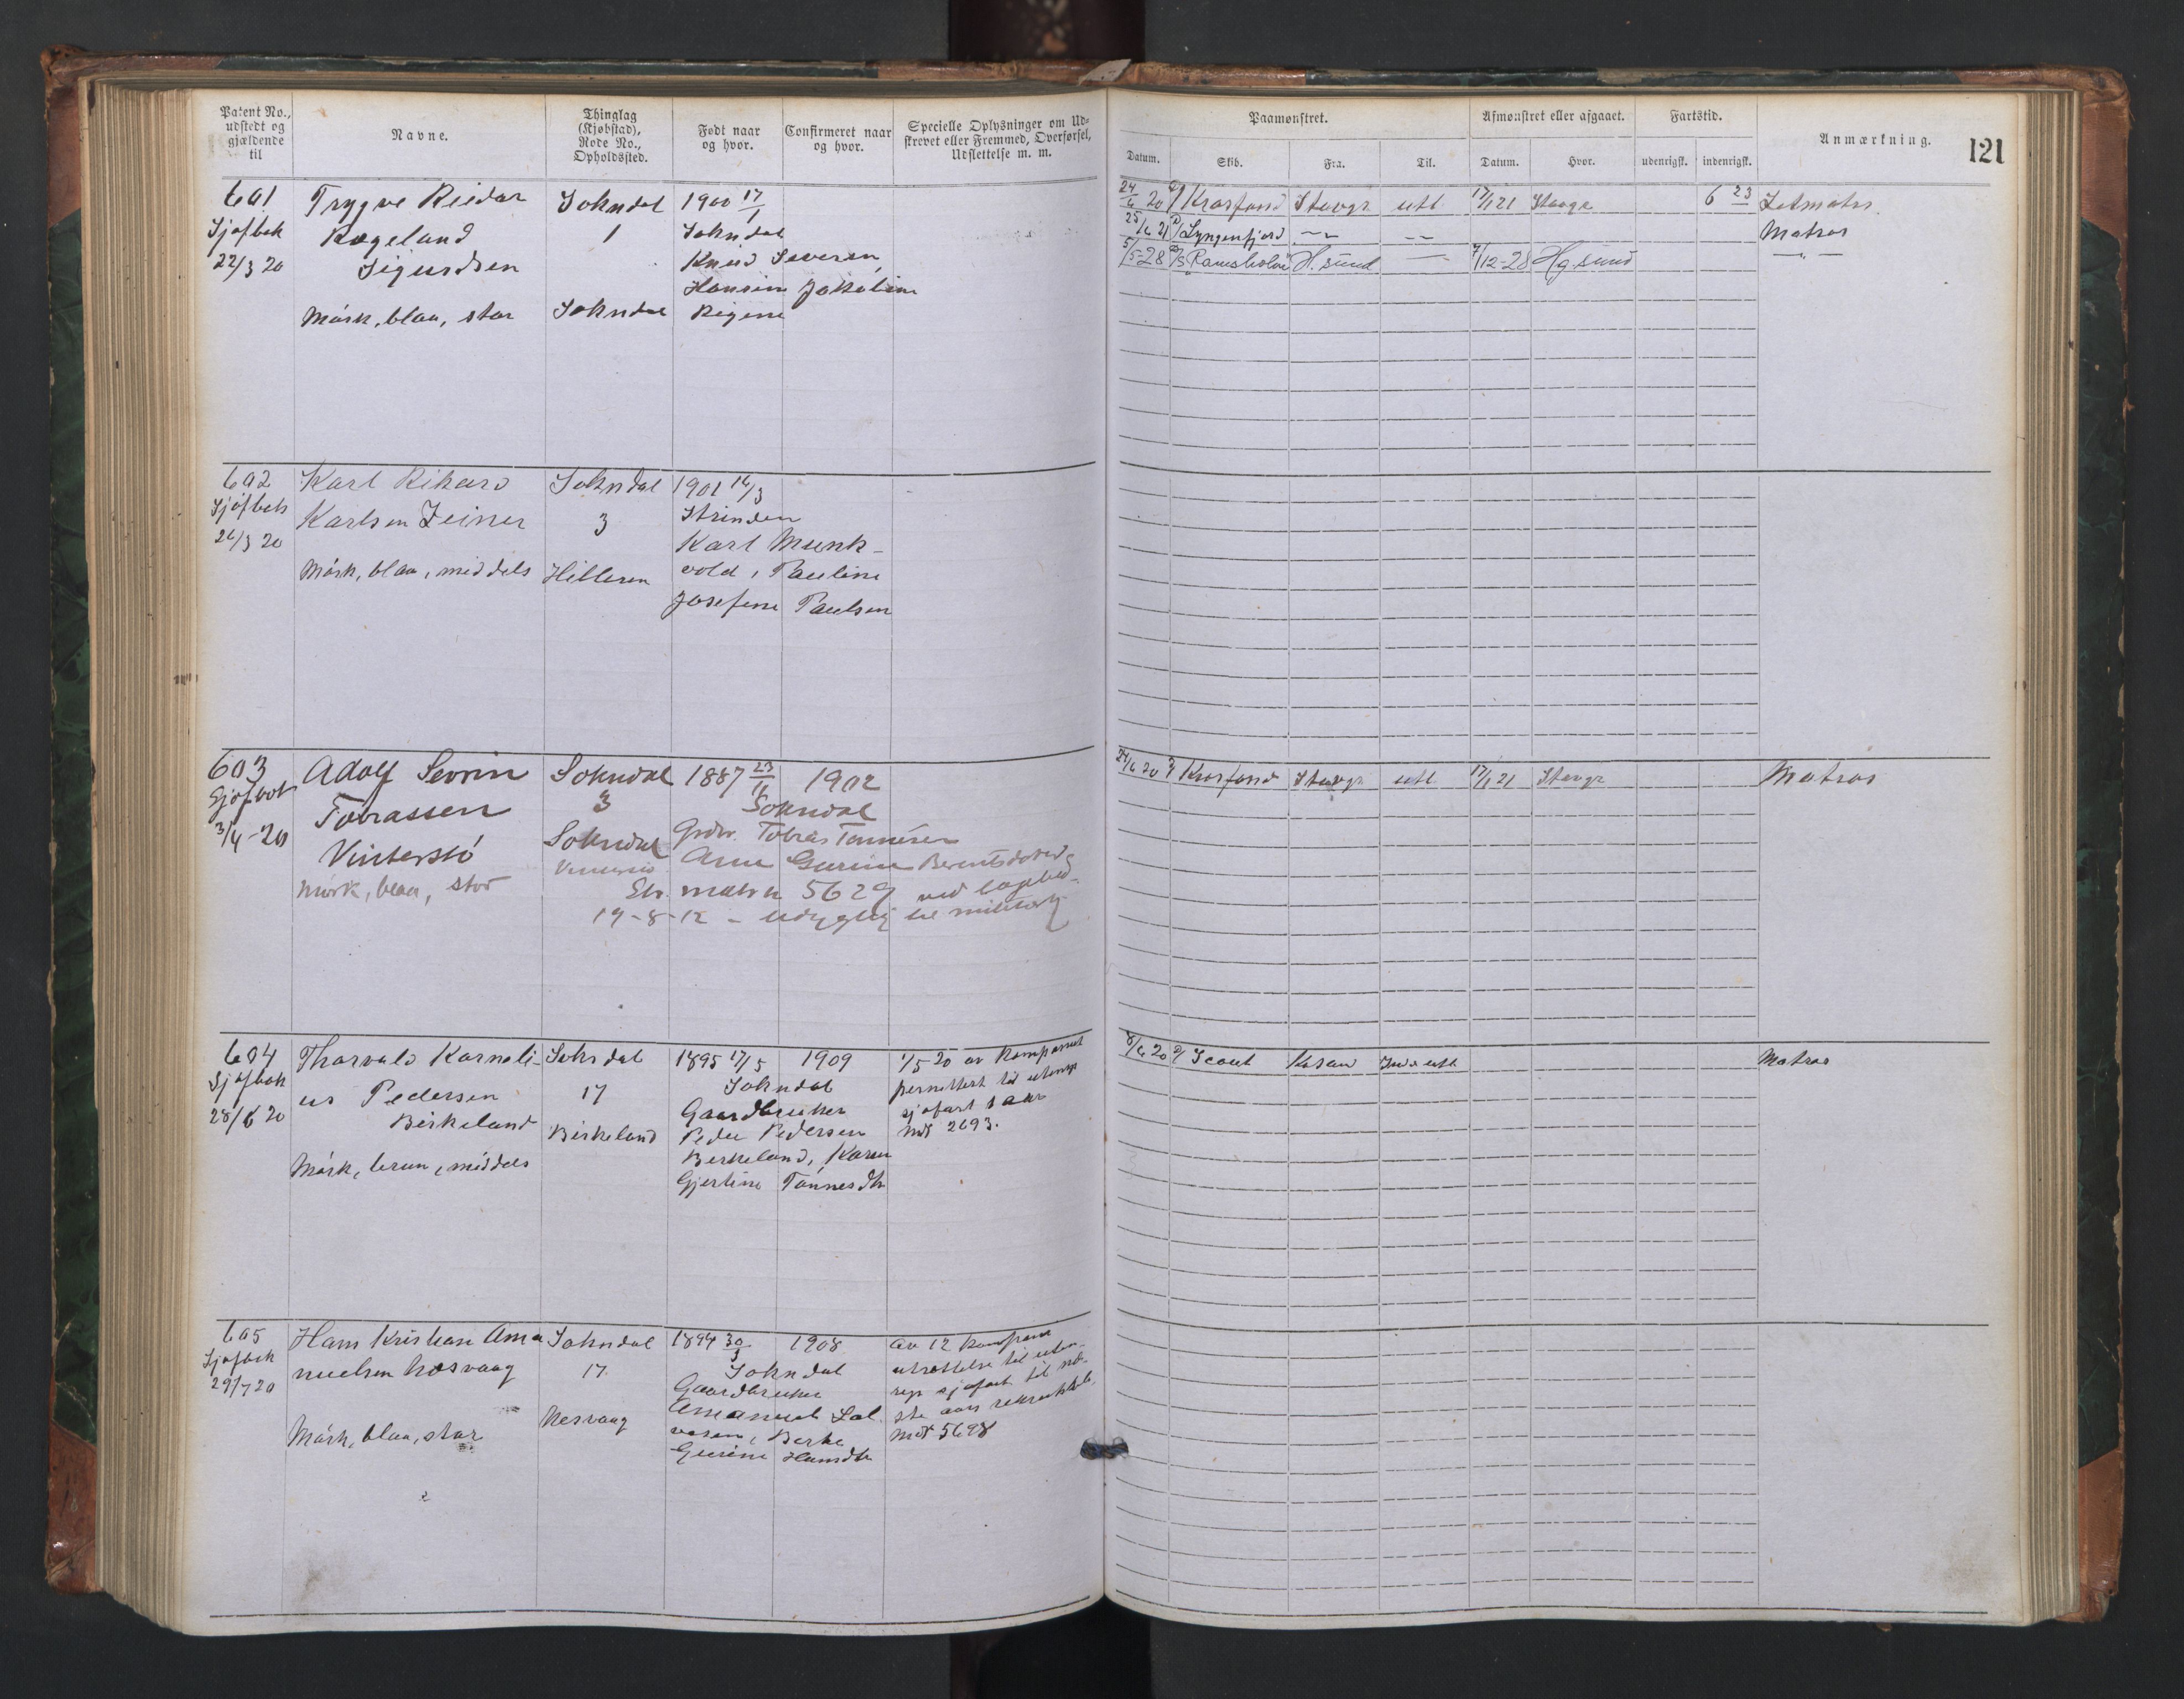 Patent No., udstedt og gjældende til
Navne.
Thinglag (Kjøbstad), Rode No., Opholdssted.
Født naar og hvor.
Confirmeret naar og hvor.
Specielle Oplysninger om Udskrevet eller Fremmed, Overførsel, Udslettelse m. m.
Paamønstret.
Datum.
Skib.
Fra.
Til.
Afmønstret eller afgaaet.
Datum.
Hvor.
Fartstid.
udenrigsk.
indenrigsk.
Anmærkning.
121
601 Trygve Reidar Sokndal 1900 17/1
Sjøfbok Rægeland 1 Sokndal
22/3 20 Sigurdsen Knud Severin
Hansine Jakoline
Mörk, blaa, stor Sokndal Regine
24/6 20 Krosfond Stavgr utl 17/1 21 Stavgr 6 23 Letmatrs
25/6 21 Lyngenfjord Matros
5/5-28 D/S Ramsholm H.sund 7/12-28 Hg.sund
602 Karl Rikard Sokndal 1901 16/3
Sjøfbok Karlsen Zeiner 3 Strinden
26/3 20 Karl Munk-
Mörk, blaa, middels Hilleren vold, Pauline
Josefine Paulsen
603 Adolf Sevrin Sokndal 1887 23/11 1902
Sjøfbok Tobiassen 3 Sokndal
3/4-20 Vinterstö Sokndal Grdbr. Tobias Tønnesen
Mörk, blaa, stor Ane Gurine Berentsdatter
matr n 5629 ved
19-8-12 - udygtig til militærtj.
24/6 20 Krosfond Stavgr utl 17/1 21 Stavgr Matros
604 Thorvald Korneli- Sokndal 1895 17/5 1909 1/5-20 av Kompaniet
Sjøfbok us Pedersen 17 Sokndal permittert til utenrgs
28/6 20 Birkeland Gaardbruker sjøfart 1 aar
Birkeland Peder Pedersen Mdt 2693.
Mörk, brun, middels Berkeland, Karen
Gjertine Tönnesdtr
8/6 20 Scout Krsan Ind & utl Matros
605 Hans Kristian Ama Sokndal 1894 30/3 1908 av 12 Kompani
Sjøfbok nuelsen Nesvaag 17 Sokndal utsættelse til uten-
29/7 20 Gaardbruker rigs sjøfart til næ-
Nesvaag Amanuel Sal ste aars
Mörk, blaa, stor vesen, Berte Mdt 5698
Gurine Hansdtr